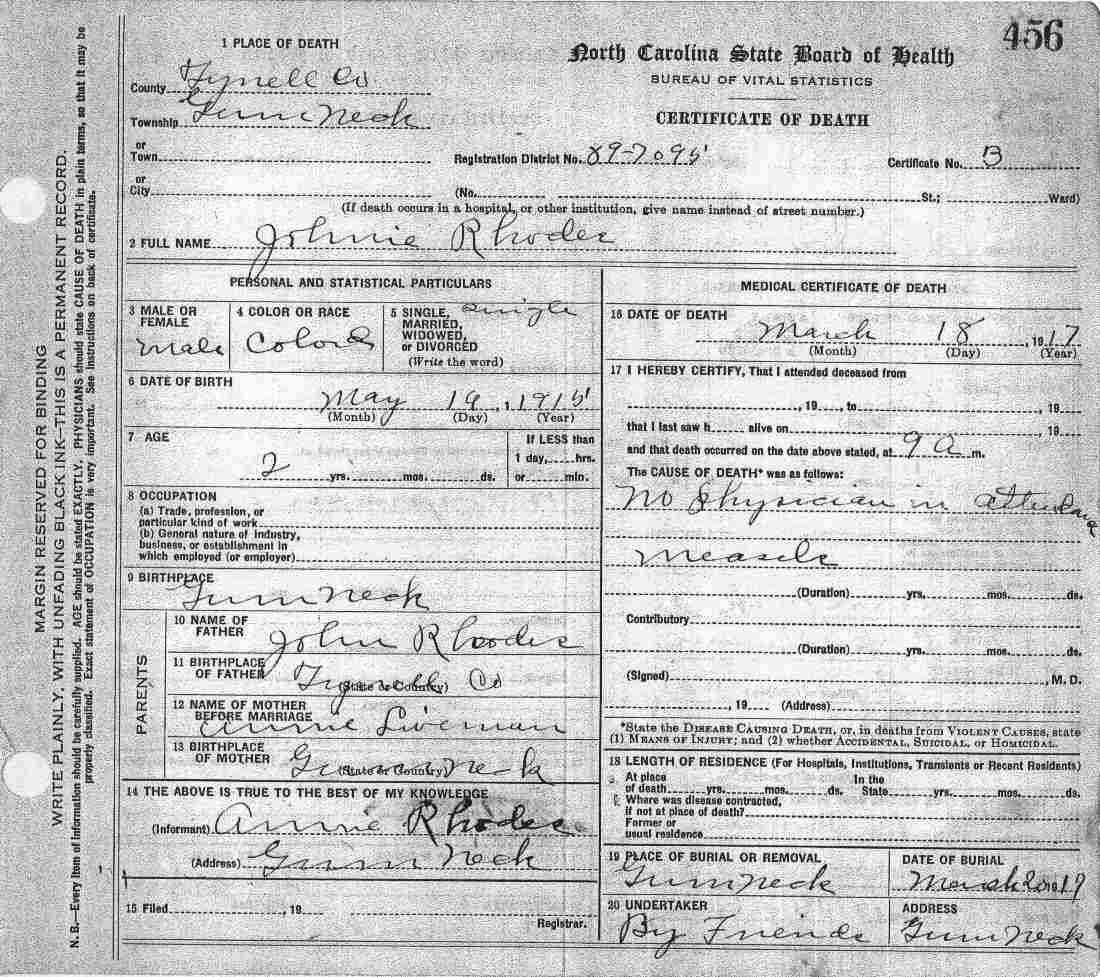 456
North Carolina State Board of Health
BUREAU OF VITAL STATISTICS
CERTIFICATE OF DEATH
1 PLACE OF DEATH
County Tyrrell Co
Township Gum Neck
or
Town
Registration District No. 89-7095
Certificate No. 3
or
City (No. St.; Ward)
(If death occurs in a hospital, or other institution, give name instead of street number.)
2 FULL NAME Johnie Rhodes
PERSONAL AND STATISTICAL PARTICULARS
3 MALE OR FEMALE
male
4 COLOR OR RACE
Colord
5 SINGLE, MARRIED, WIDOWED, or DIVORCED
(Write the word)
single
6 DATE OF BIRTH
May 19, 1915
(Month) (Day) (Year)
7 AGE
If LESS than
2 yrs. mos. ds.
1 day, hrs.
or min.
8 OCCUPATION
(a) Trade, profession, or
particular kind of work
(b) General nature of industry,
business, or establishment in
which employed (or employer)
9 BIRTHPLACE
Gum Neck
PARENTS
10 NAME OF FATHER John Rhodes
11 BIRTHPLACE OF FATHER Tyrrell Co
(State or Country)
12 NAME OF MOTHER BEFORE MARRIAGE Annie Liverman
13 BIRTHPLACE OF MOTHER Gum Neck
(State or Country)
14 THE ABOVE IS TRUE TO THE BEST OF MY KNOWLEDGE
(Informant) Annie Rhodes
(Address) Gum Neck
15 Filed , 19
Registrar.
MEDICAL CERTIFICATE OF DEATH
16 DATE OF DEATH
March 18, 1917
(Month) (Day) (Year)
17 I HEREBY CERTIFY, That I attended deceased from
, 19 , to , 19
that I last saw h alive on , 19
and that death occurred on the date above stated, at 9 a m.
The CAUSE OF DEATH* was as follows:
No physician in attendance
measels
(Duration) yrs. mos. ds.
Contributory
(Duration) yrs. mos. ds.
(Signed) , M. D.
, 19 (Address)
*State the DISEASE CAUSING DEATH, or, in deaths from VIOLENT CAUSES, state
(1) MEANS OF INJURY; and (2) whether ACCIDENTAL, SUICIDAL, or HOMICIDAL.
18 LENGTH OF RESIDENCE (For Hospitals, Institutions, Transients or Recent Residents)
At place In the
of death yrs. mos. ds. State yrs. mos. ds.
Where was disease contracted,
if not at place of death?
Former or
usual residence
19 PLACE OF BURIAL OR REMOVAL
Gum neck
DATE OF BURIAL
March 20 19
20 UNDERTAKER
By Friends
ADDRESS
Gum Neck
MARGIN RESERVED FOR BINDING
WRITE PLAINLY, WITH UNFADING BLACK INK—THIS IS A PERMANENT RECORD.
N. B.—Every item of information should be carefully supplied. AGE should be stated EXACTLY. PHYSICIANS should state CAUSE OF DEATH in plain terms, so that it may be
properly classified. Exact statement of OCCUPATION is very important. See Instructions on back of certificate.